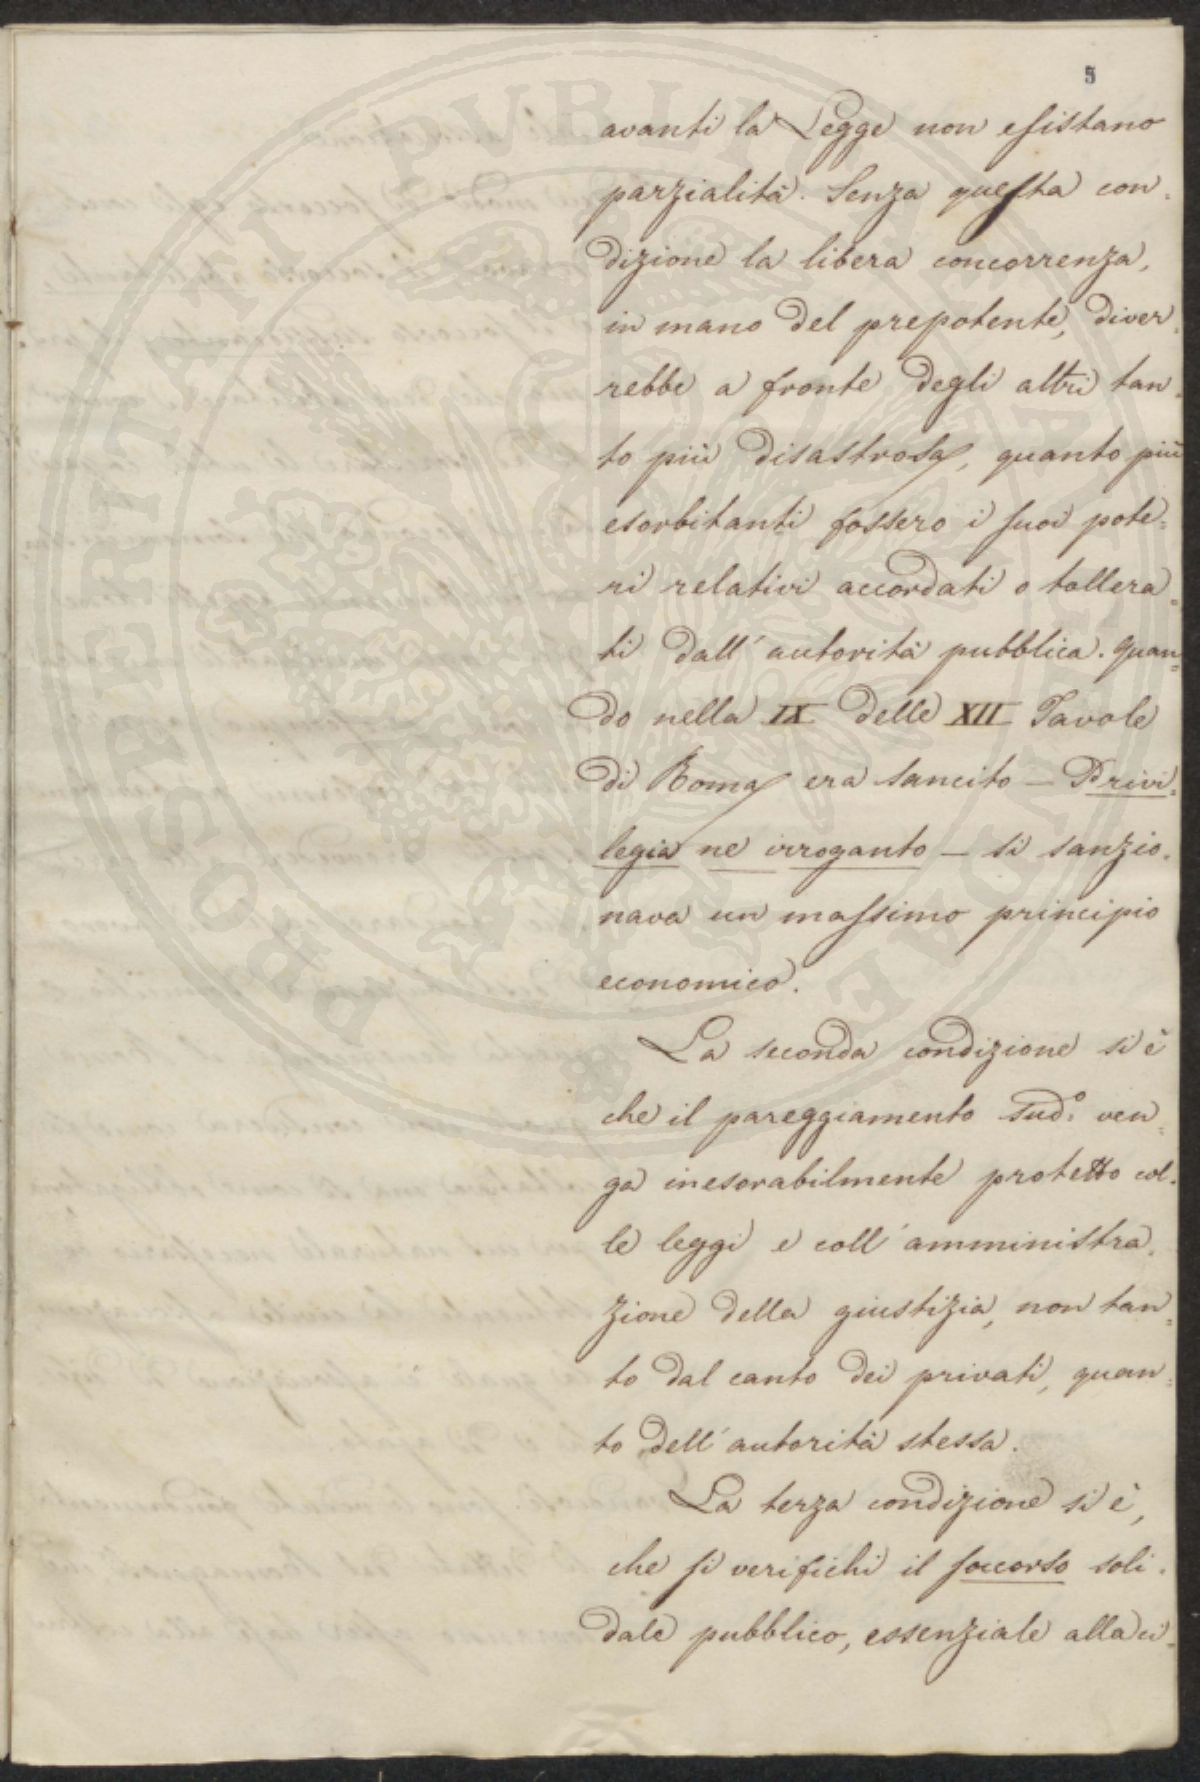 5
avanti la Legge non esistano
parzialità. Senza questa con=
dizione la libera concorrenza,
in mano del prepotente, diver=
rebbe a fronte degli altri tan=
to più disastrosa, quanto più
esorbitanti fossero i suoi pote=
ri relativi accordati o tollera=
ti dall'autorità pubblica. Quan=
do nella IX delle XII Tavole
di Roma era sancito — Privi=
legia ne irroganto — si sanzio=
nava un massimo principio
economico.
La seconda condizione si è
che il pareggiamento sud.º ven=
ga inesorabilmente protetto col=
le leggi e coll'amministra=
zione della giustizia, non tan=
to dal canto dei privati, quan=
to dell'autorità stessa.
La terza condizione si è,
che si verifichi il soccorso soli=
dale pubblico, essenziale alla ci=
PROSPERITATI PUBLICAE AUGENDAE